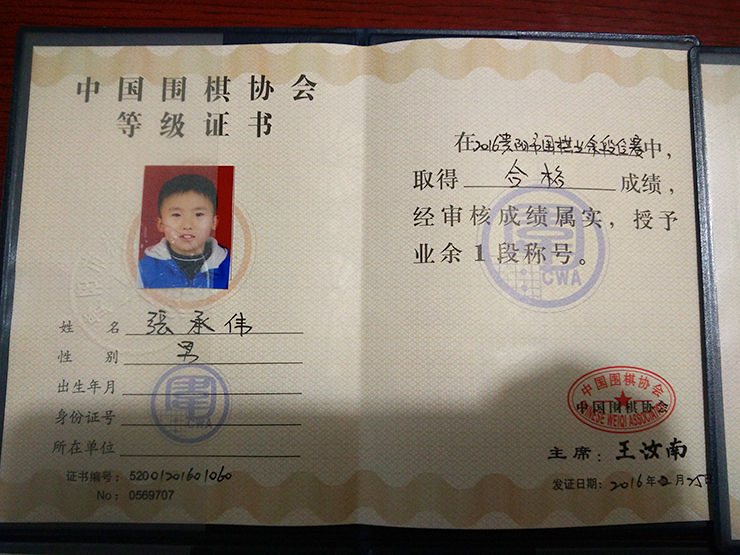 中国围棋协会
等级证书
姓 名 張承伟
性 别 男
出生年月
身份证号
所在单位
证书编号：52001201601060
No：0569707
在2016贵阳市围棋业余段位赛中，
取得 合格 成绩，
经审核成绩属实，授予
业余1段称号。
CWA
CWA
中国围棋协会
中国围棋协会
CHINESE WEIQI ASSOCIATION
主席：王汝南
发证日期：2016年2月25日